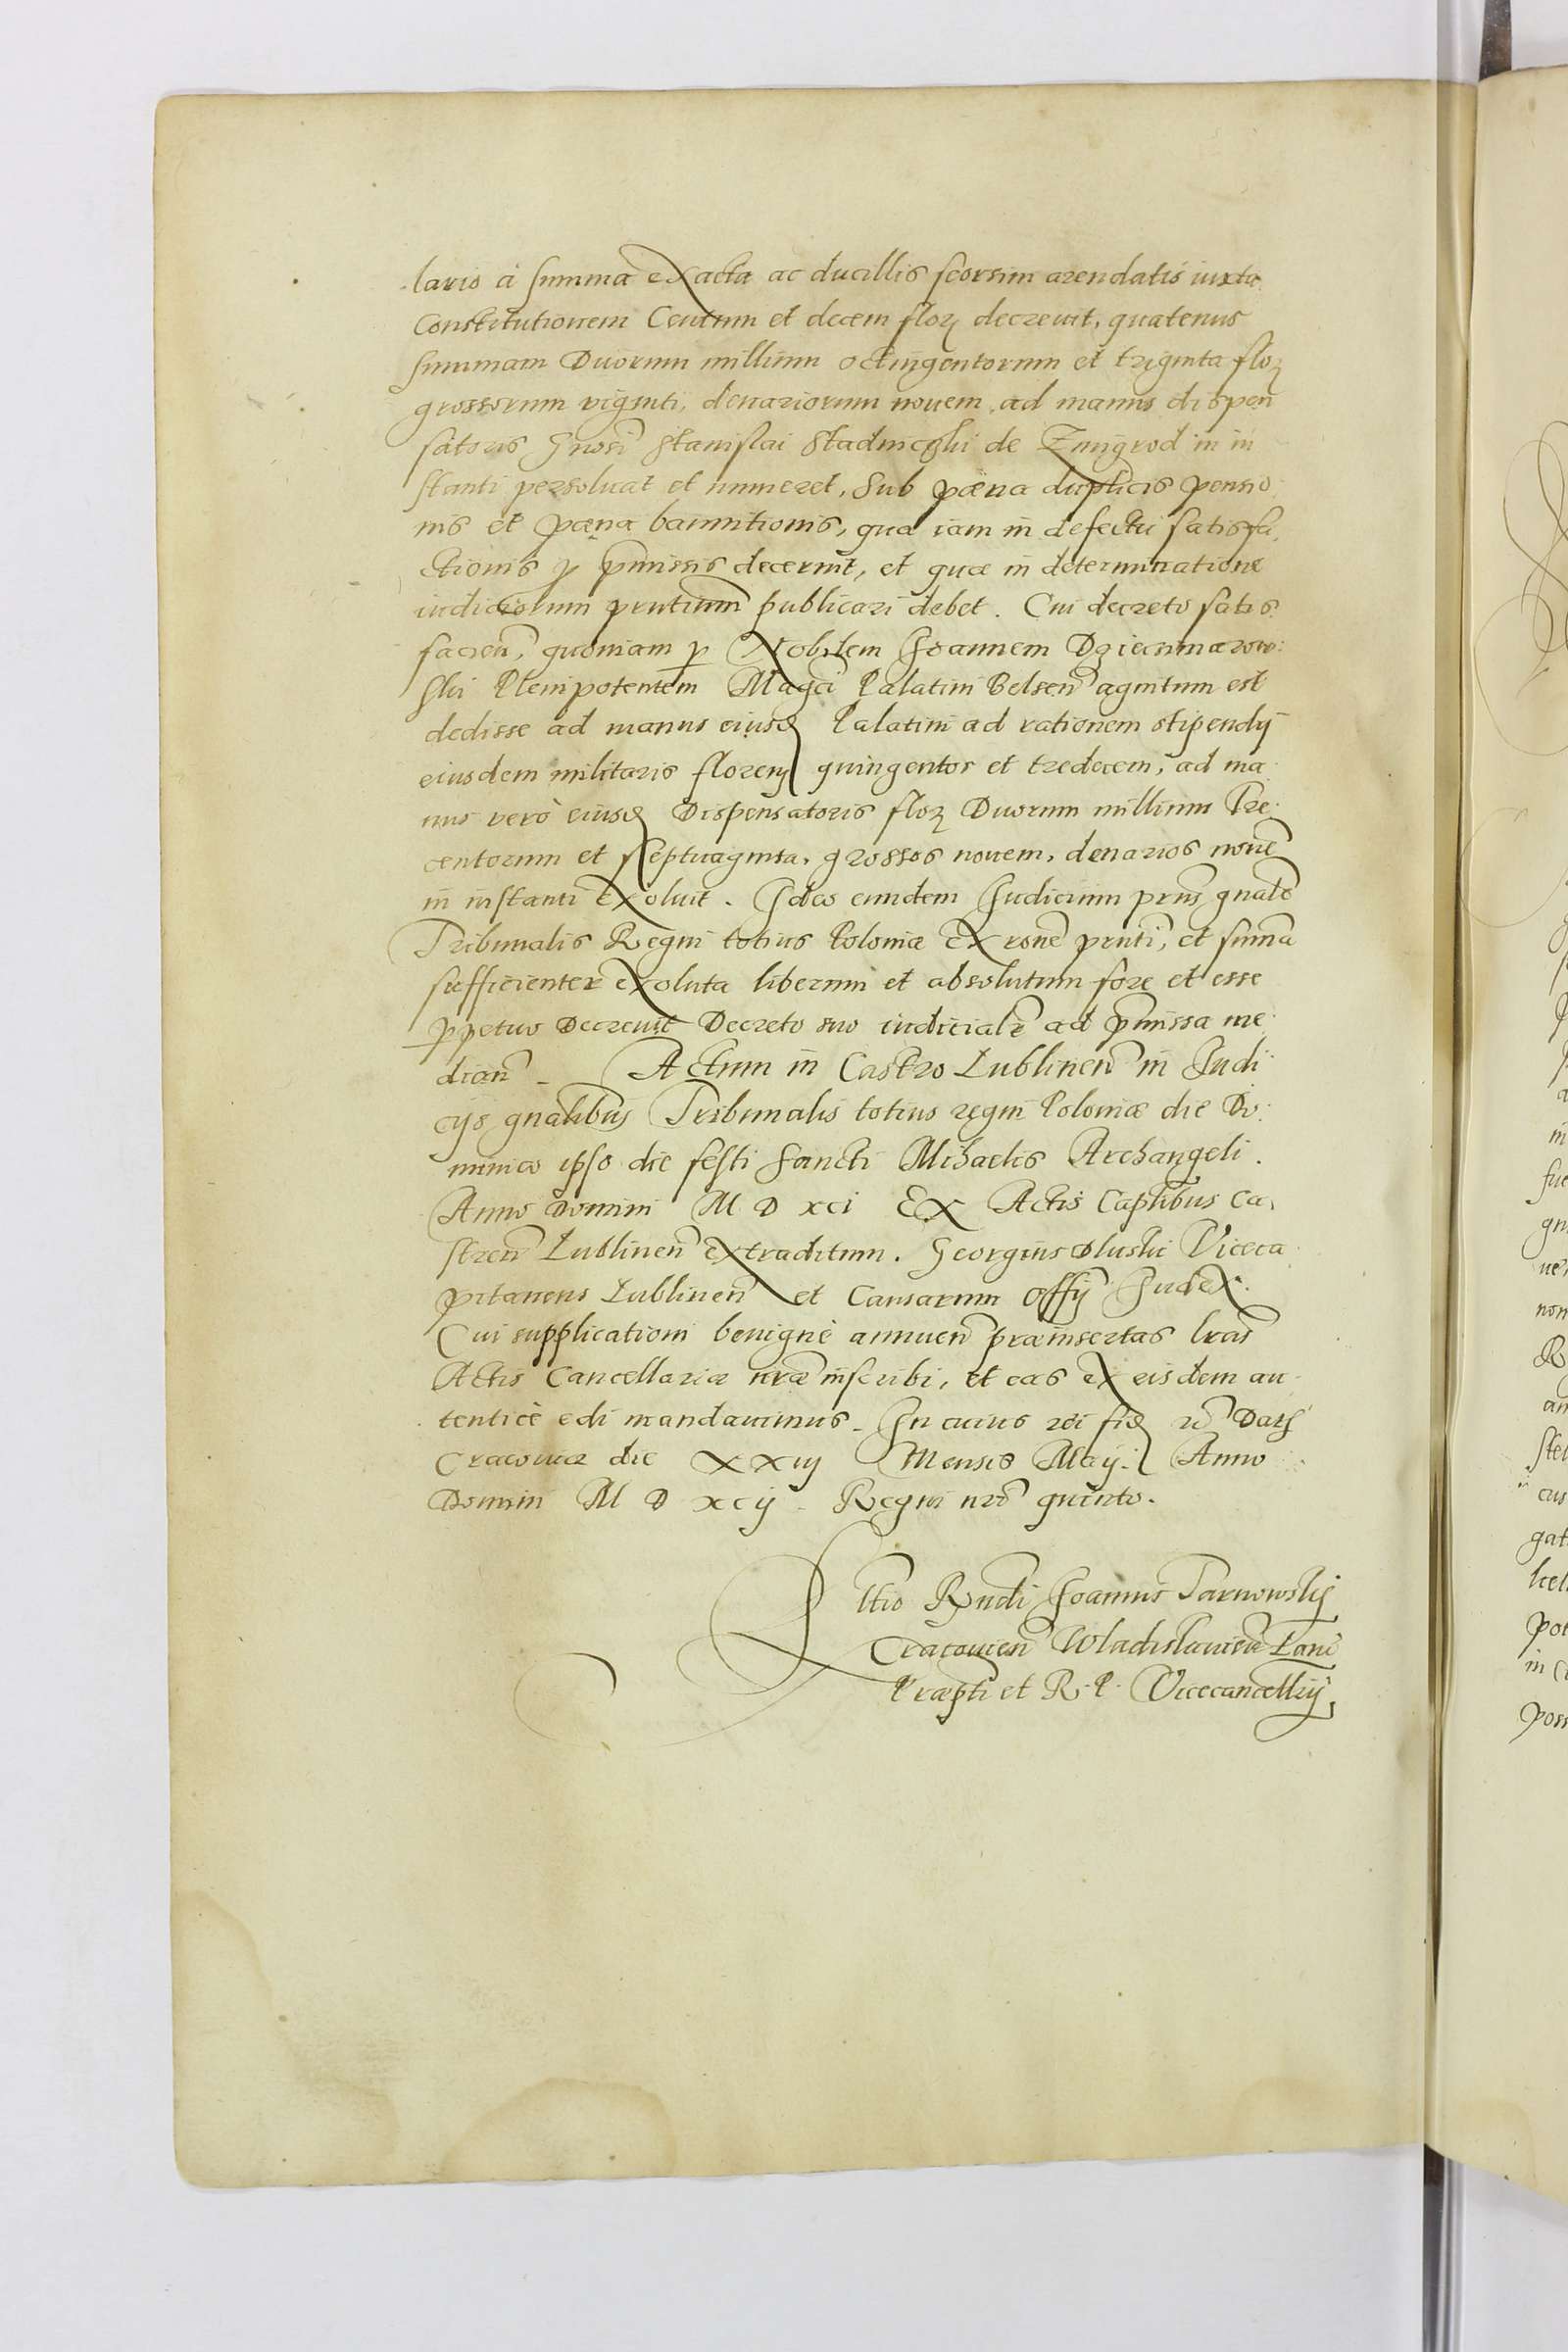 lario à summa exacta ac ducillis seorsim arendatis iuxta
Constitutionem Centum et decem flor decreuit, quatenus
summam Duorum millium octingentorum et triginta flor
grossorum viginti, denariorum nouem, ad manus dispen
satoris Gnosi Stanislai Stadnicski de Zmigrod in in
stanti persoluat et numeret, sub pœna duplicis pensio
nis et pœna bannitionis, qua iam in defectu satisfa
ctionis p pmissis decernit, et quæ in determinatione
iudiciorum pntium publicari debet. Cui decreto satis
facien, quoniam p Nobilem Joannem
ski Plenipotentem Magci Palatini Belsen agnitum est
dedisse ad manus eiusd Palatini ad rationem stipendij
eiusdem militaris floren quingentos et tredecem, ad ma
nus verò eiusd Dispensatoris flor Duorum millium Tre
centorum et septuaginta, grossos nouem, denarios nouē
in instanti exoluit. Ideo eundem Judicium pns gnale
Tribunalis Regni totius Poloniæ ex rone pnti, et suma
sufficienter exoluta liberum et absolutum fore et esse
ppetuo Decreuit Decreto suo iudiciali ad pmissa me
dian. Actum in Castro Lublinen in Judi
cijs gnalibus Tribunalis totius regni Poloniæ die Do
minico ipso die festi Sancti Mihaelis Archangeli.
Anno Domini M D xci Ex Actis Caplibus Ca
stren Lublinen extraditum. Georgius Oluski Viceca
pitaneus Lublinen et Causarum Offij Judex.
Cui supplicationi benignè annuen præinsertas lras
Actis Cancellariæ nræ inscribi, et eas ex eisdem au
tenticè edi mandauimus. In cuius rei fid rc Dat
Cracouiæ die XXiij Mensis Maij. Anno
Domini M D xcij. Regni nri quinto.
Rltio Rndi Joannis Tarnowskij
Cracouien Wladislauien Lanc
Præpti et R. P. Vicecancellrij